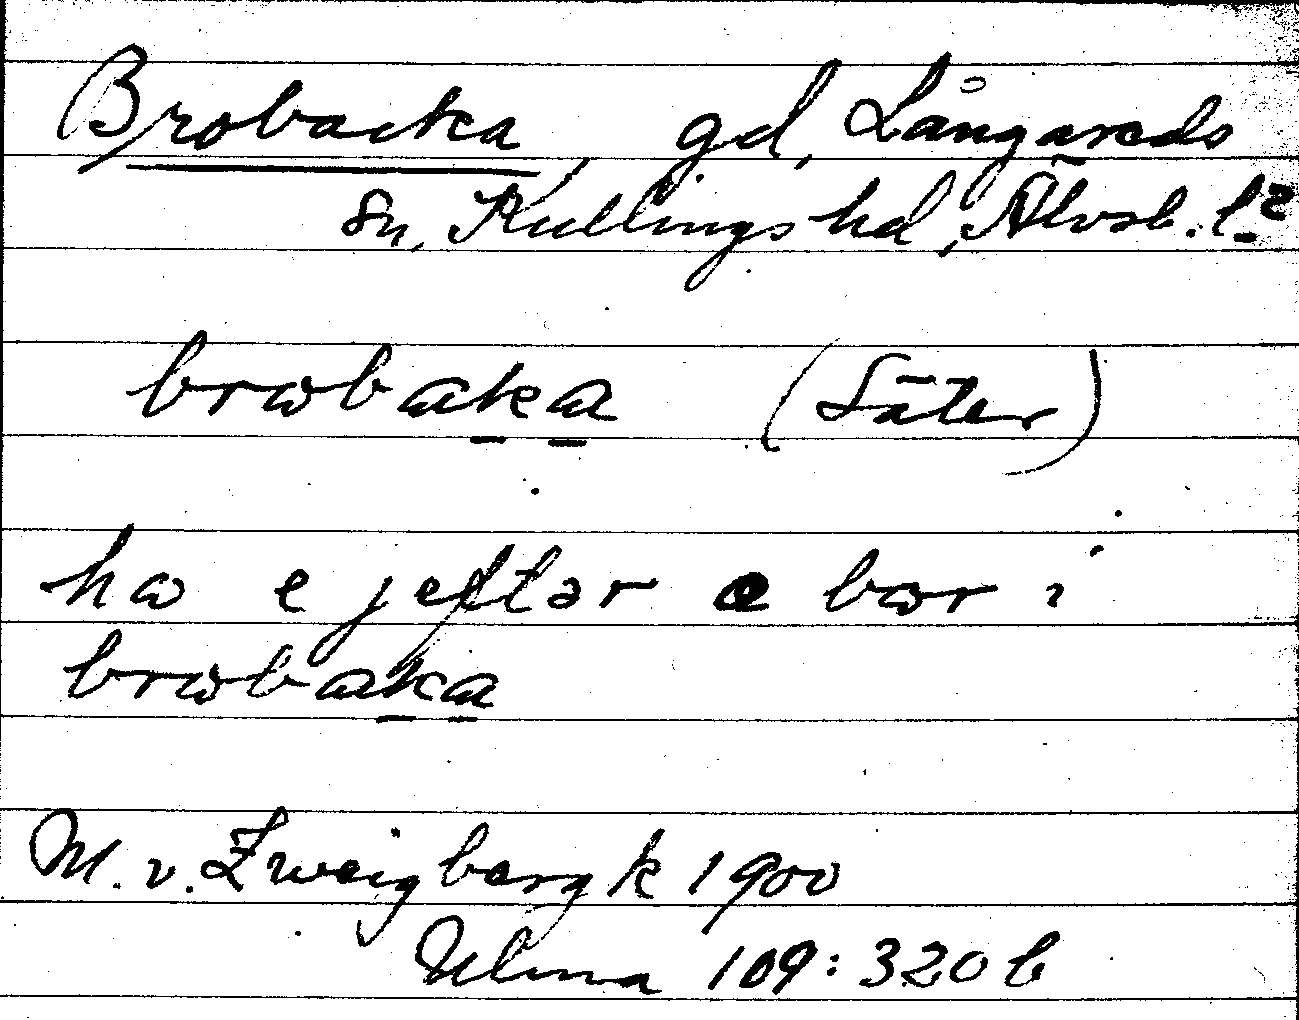 Brobacka, gd, Långareds
sn, Kullings hd, Älvsb. l.
brωbaka (Säter)
hω e jeftər e bωr i
brωbaka
M. v. Zweigbergk 1900
Ulma 109:320 b